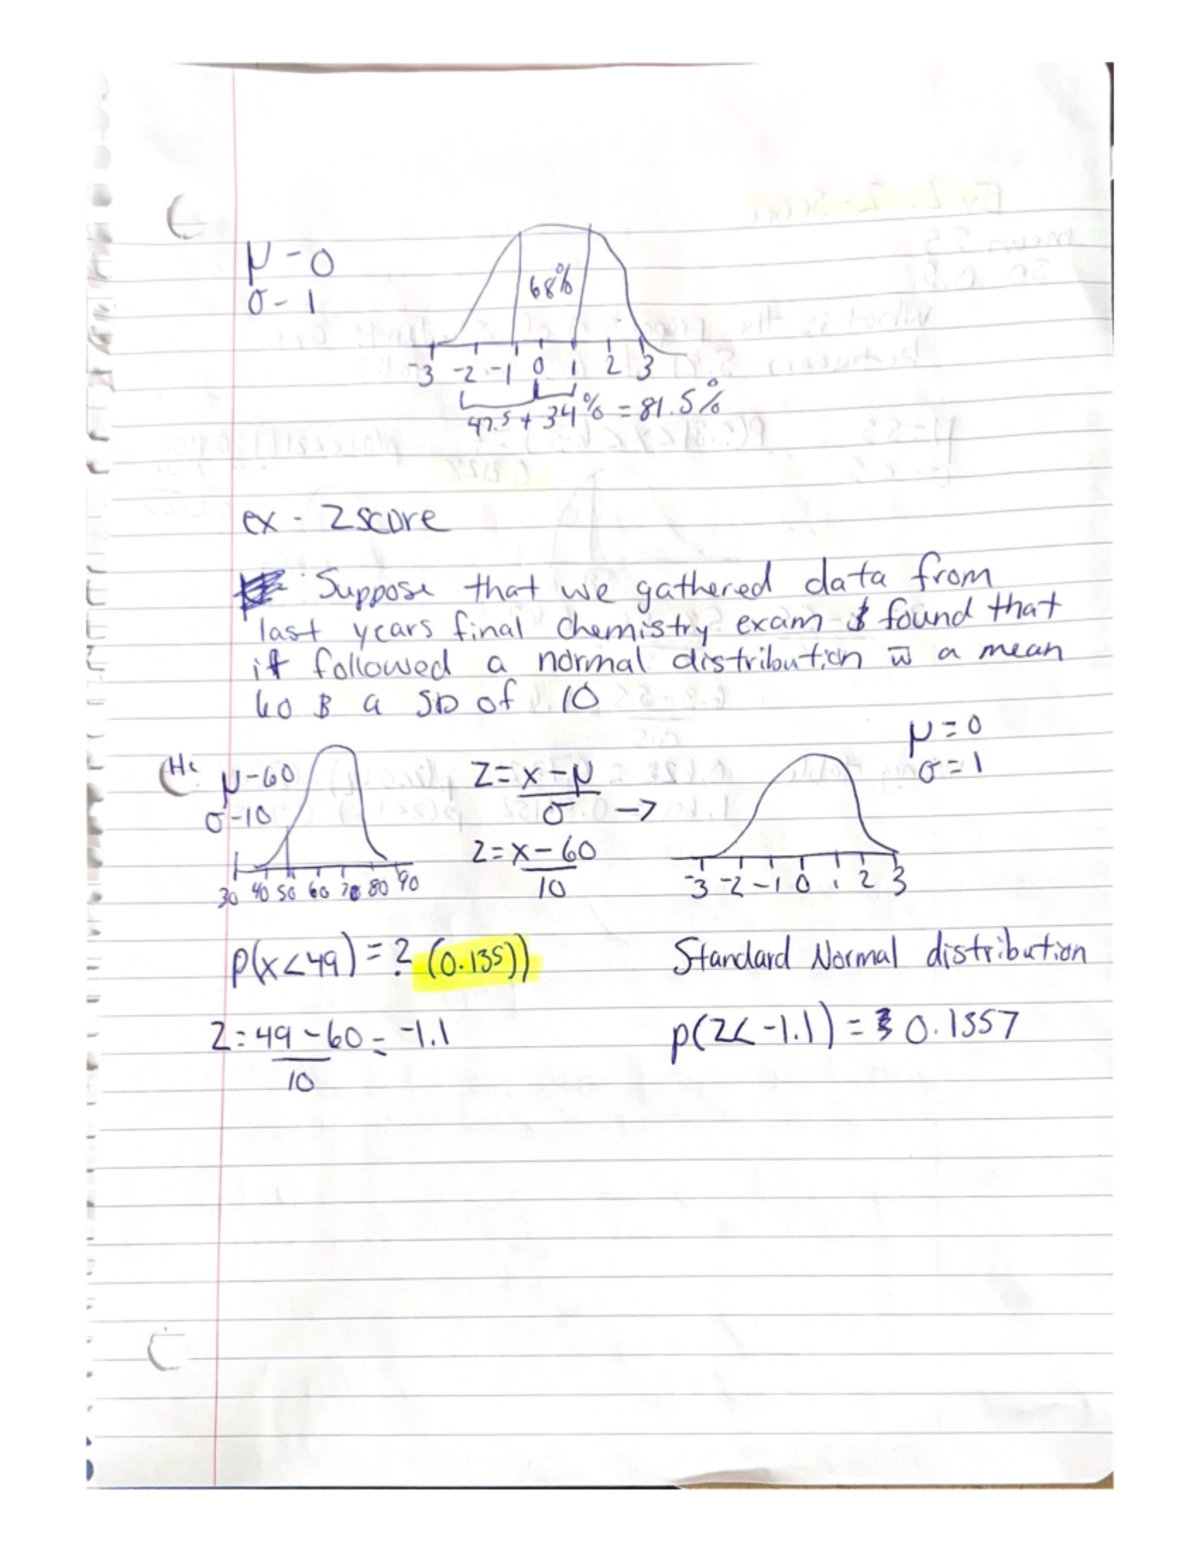 μ - 0
σ - 1
68%
-3 -2 -1 0 1 2 3
47.5 + 34% = 81.5%
ex - Zscore
Suppose that we gathered data from
last years final chemistry exam & found that
it followed a normal distribution w a mean
60 & a SD of 10
μ = 0
σ = 1
μ - 60
σ - 10
Z = x - μ
σ →
Z = x - 60
10
30 40 50 60 70 80 90
-3 -2 -1 0 1 2 3
p(x < 49) = ? (0.135))
Standard Normal distribution
Z = 49 - 60 = -1.1
10
p(Z < -1.1) = 0.1357